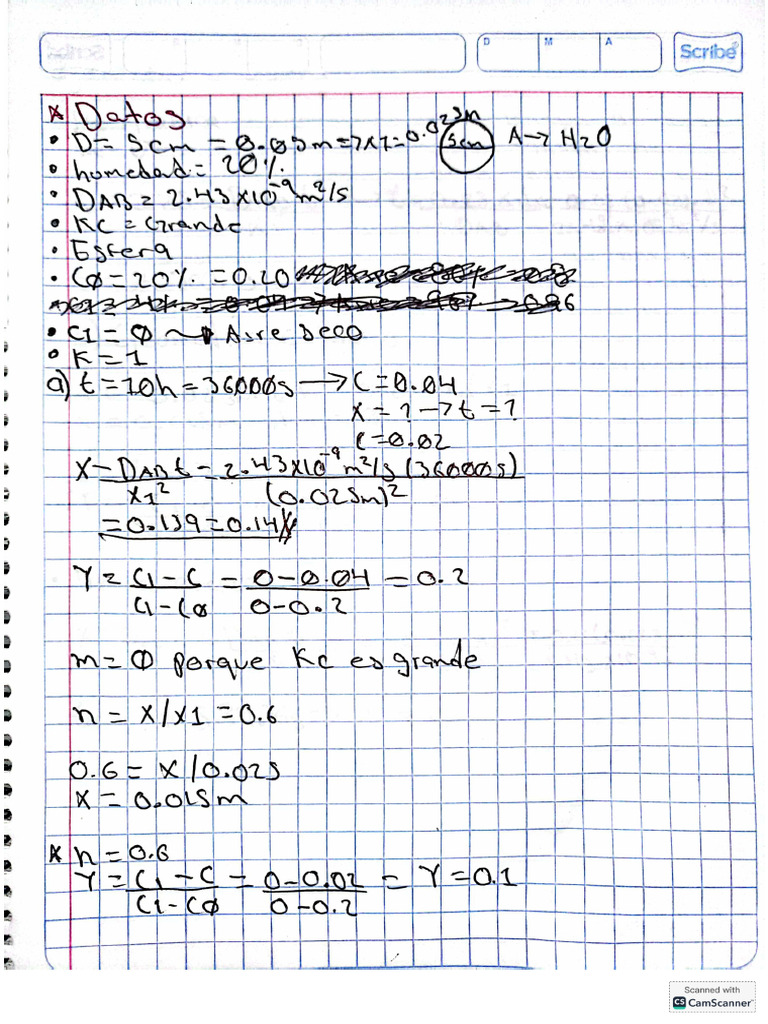 D M A Scribe
* Datos
• D= 5cm = 0.05m => x1=0.025m 5cm A → H2O
• humedad= 20%.
• DAB= 2.43x10⁻⁹m²/s
• Kc = Grande
• Esfera
• CØ = 20%. = 0.20
• C1= Ø ~→ Aire Seco
• K=1
a) t=10h=36000s → C=0.04
X = ? → t = ?
C=0.02
X = DABt = 2.43x10⁻⁹m²/s (36000s)
x1² (0.025m)²
=0.139=0.14
Y = C1 - C = 0 - 0.04 = 0.2
C1 - CØ 0 - 0.2
m= Ø porque Kc es grande
n = X/X1 = 0.6
0.6 = X /0.025
X = 0.015m
* n = 0.6
Y = C1 - C = 0 - 0.02 = Y = 0.1
C1 - CØ 0 - 0.2
Scanned with
CS CamScanner